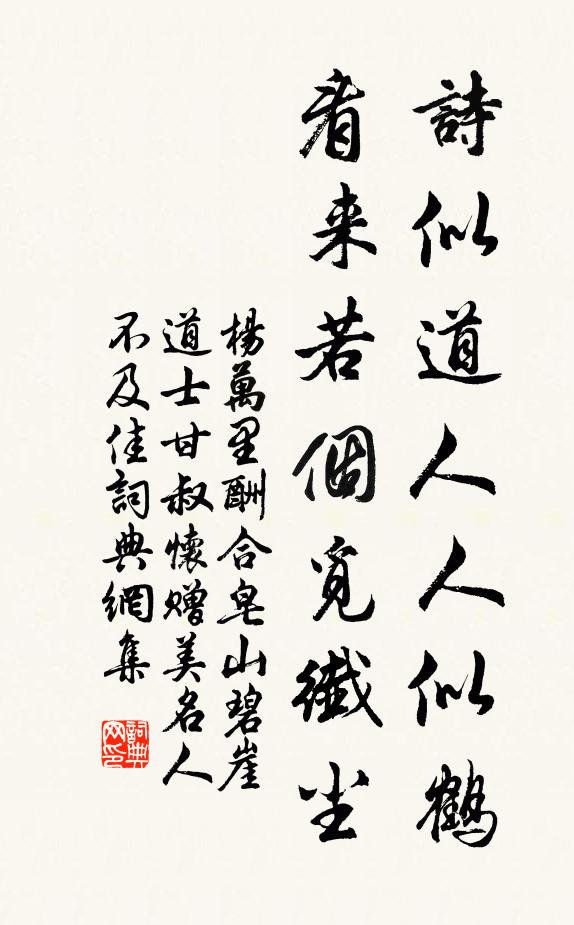 詩似道人人似鶴
看来若個覓纖尘
楊萬里酬合皂山碧崖
道士甘叔懷贈美名人
不及佳詞典網集
詞典网印